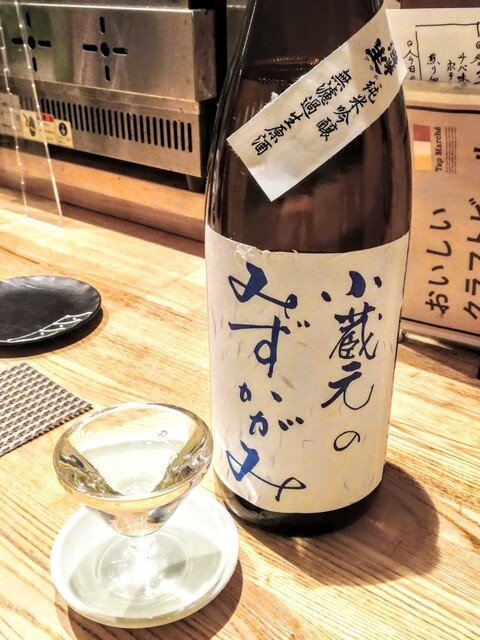 純米吟醸
無濾過生原酒
小蔵元の
みずかがみ
Tap Marché
おいしい
クラフトビ